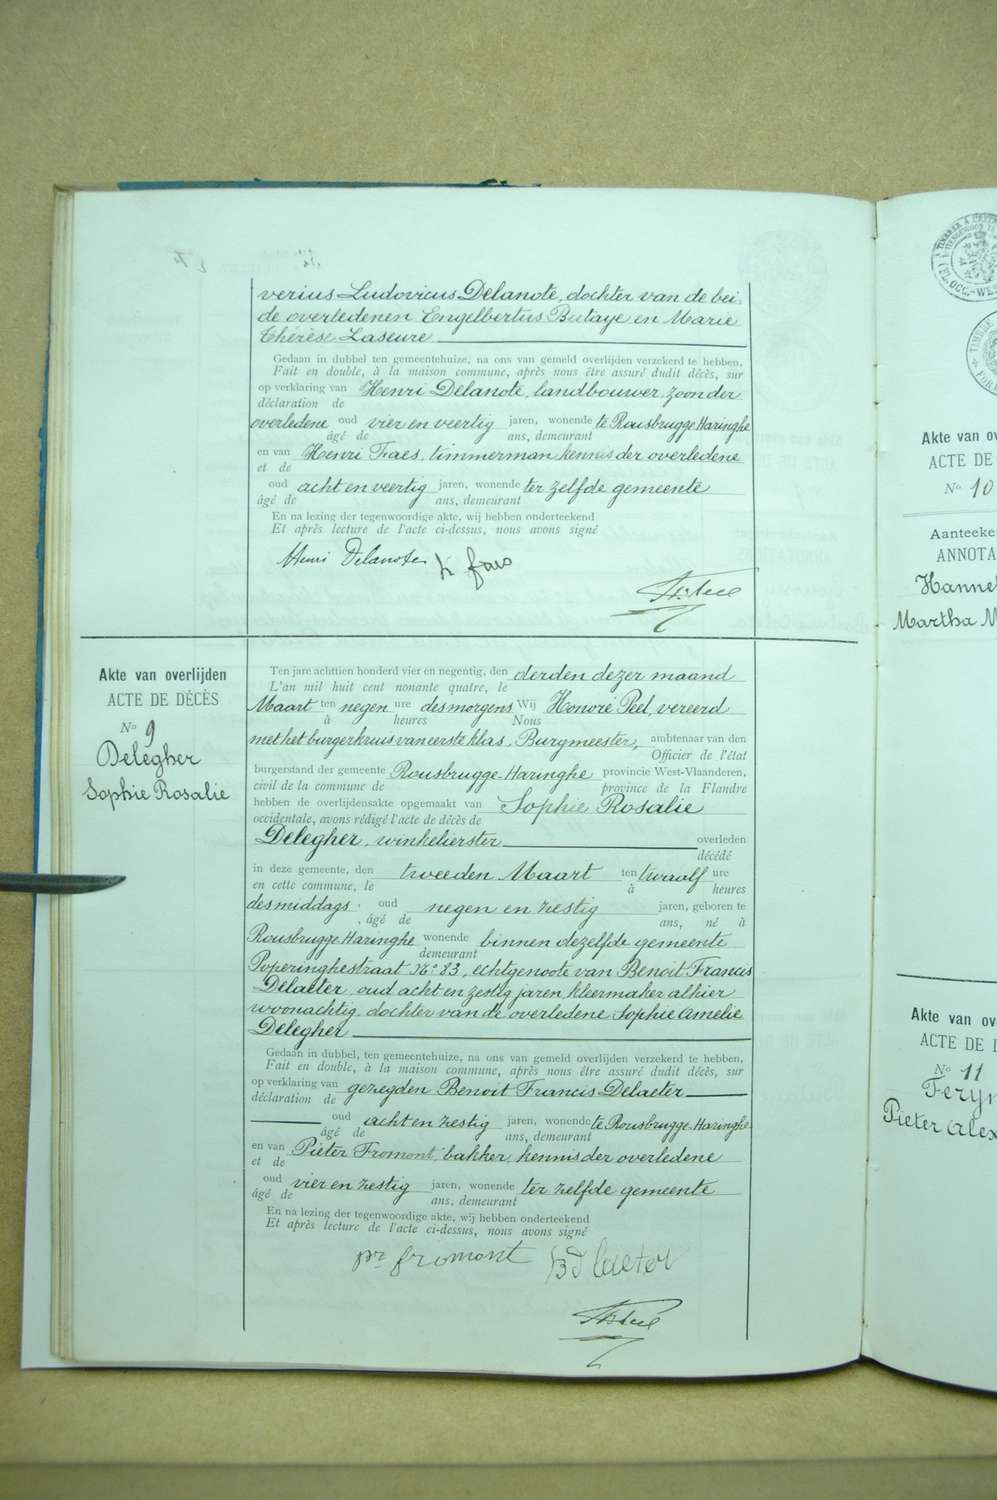 verius Ludovicus Delanote, dochter van de bei-
de overledenen Engelbertus Butaye en Marie
Thérèse Laseure
Gedaan in dubbel ten gemeentehuize, na ons van gemeld overlijden verzekerd te hebben,
Fait en double, à la maison commune, après nous être assuré dudit décès, sur
op verklaring van Henri Delanote, landbouwer, zoon der
déclaration de
overledene oud vier en veertig jaren, wonende te Rousbrugge-Haringhe
âgé de ans, demeurant
en van Henri Faes, timmerman kennis der overledene
et de
oud acht en veertig jaren, wonende ter zelfde gemeente
âgé de ans, demeurant
En na lezing der tegenwoordige akte, wij hebben onderteekend
Et après lecture de l'acte ci-dessus, nous avons signé
Henri Delanote
Akte van overlijden
ACTE DE DÉCÈS
No 9
Delegher
Sophie Rosalie
Ten jare achttien honderd vier en negentig, den derden dezer maand
L'an mil huit cent nonante quatre, le
Maart ten negen ure des morgens Wij Honoré Peel, vereerd
à heures Nous
met het burgerkruis van eerste klas, Burgmeester, ambtenaar van den
Officier de l'état
burgerstand der gemeente Rousbrugge-Haringhe provincie West-Vlaanderen,
civil de la commune de province de la Flandre
hebben de overlijdensakte opgemaakt van Sophie Rosalie
occidentale, avons rédigé l'acte de décès de
Delegher, winkelierster overleden
décédé
in deze gemeente, den tweeden Maart ten twaalf ure
en cette commune, le à heures
des middags oud negen en zestig jaren, geboren te
âgé de ans, né à
Rousbrugge-Haringhe wonende binnen dezelfde gemeente
demeurant
Poperinghestraat No 83, echtgenoote van Benoit Francis
Delaeter, oud acht en zestig jaren, kleermaker alhier
woonachtig, dochter van de overledene Sophie Amelie
Delegher
Gedaan in dubbel, ten gemeentehuize, na ons van gemeld overlijden verzekerd te hebben,
Fait en double, à la maison commune, après nous être assuré dudit décès, sur
op verklaring van gezegden Benoit Francis Delaeter
déclaration de
oud acht en zestig jaren, wonende te Rousbrugge-Haringhe
âgé de ans, demeurant
en van Pieter Fromont, bakker, kennis der overledene
et de
oud vier en zestig jaren, wonende ter zelfde gemeente
âgé de ans, demeurant
En na lezing der tegenwoordige akte, wij hebben onderteekend
Et après lecture de l'acte ci-dessus, nous avons signé
pr fromont
Akte van ov
ACTE DE
No 10
Aanteeke
ANNOTA
Hanne
Martha M
Akte van ov
ACTE DE
No 11
Feryn
Pieter Alex